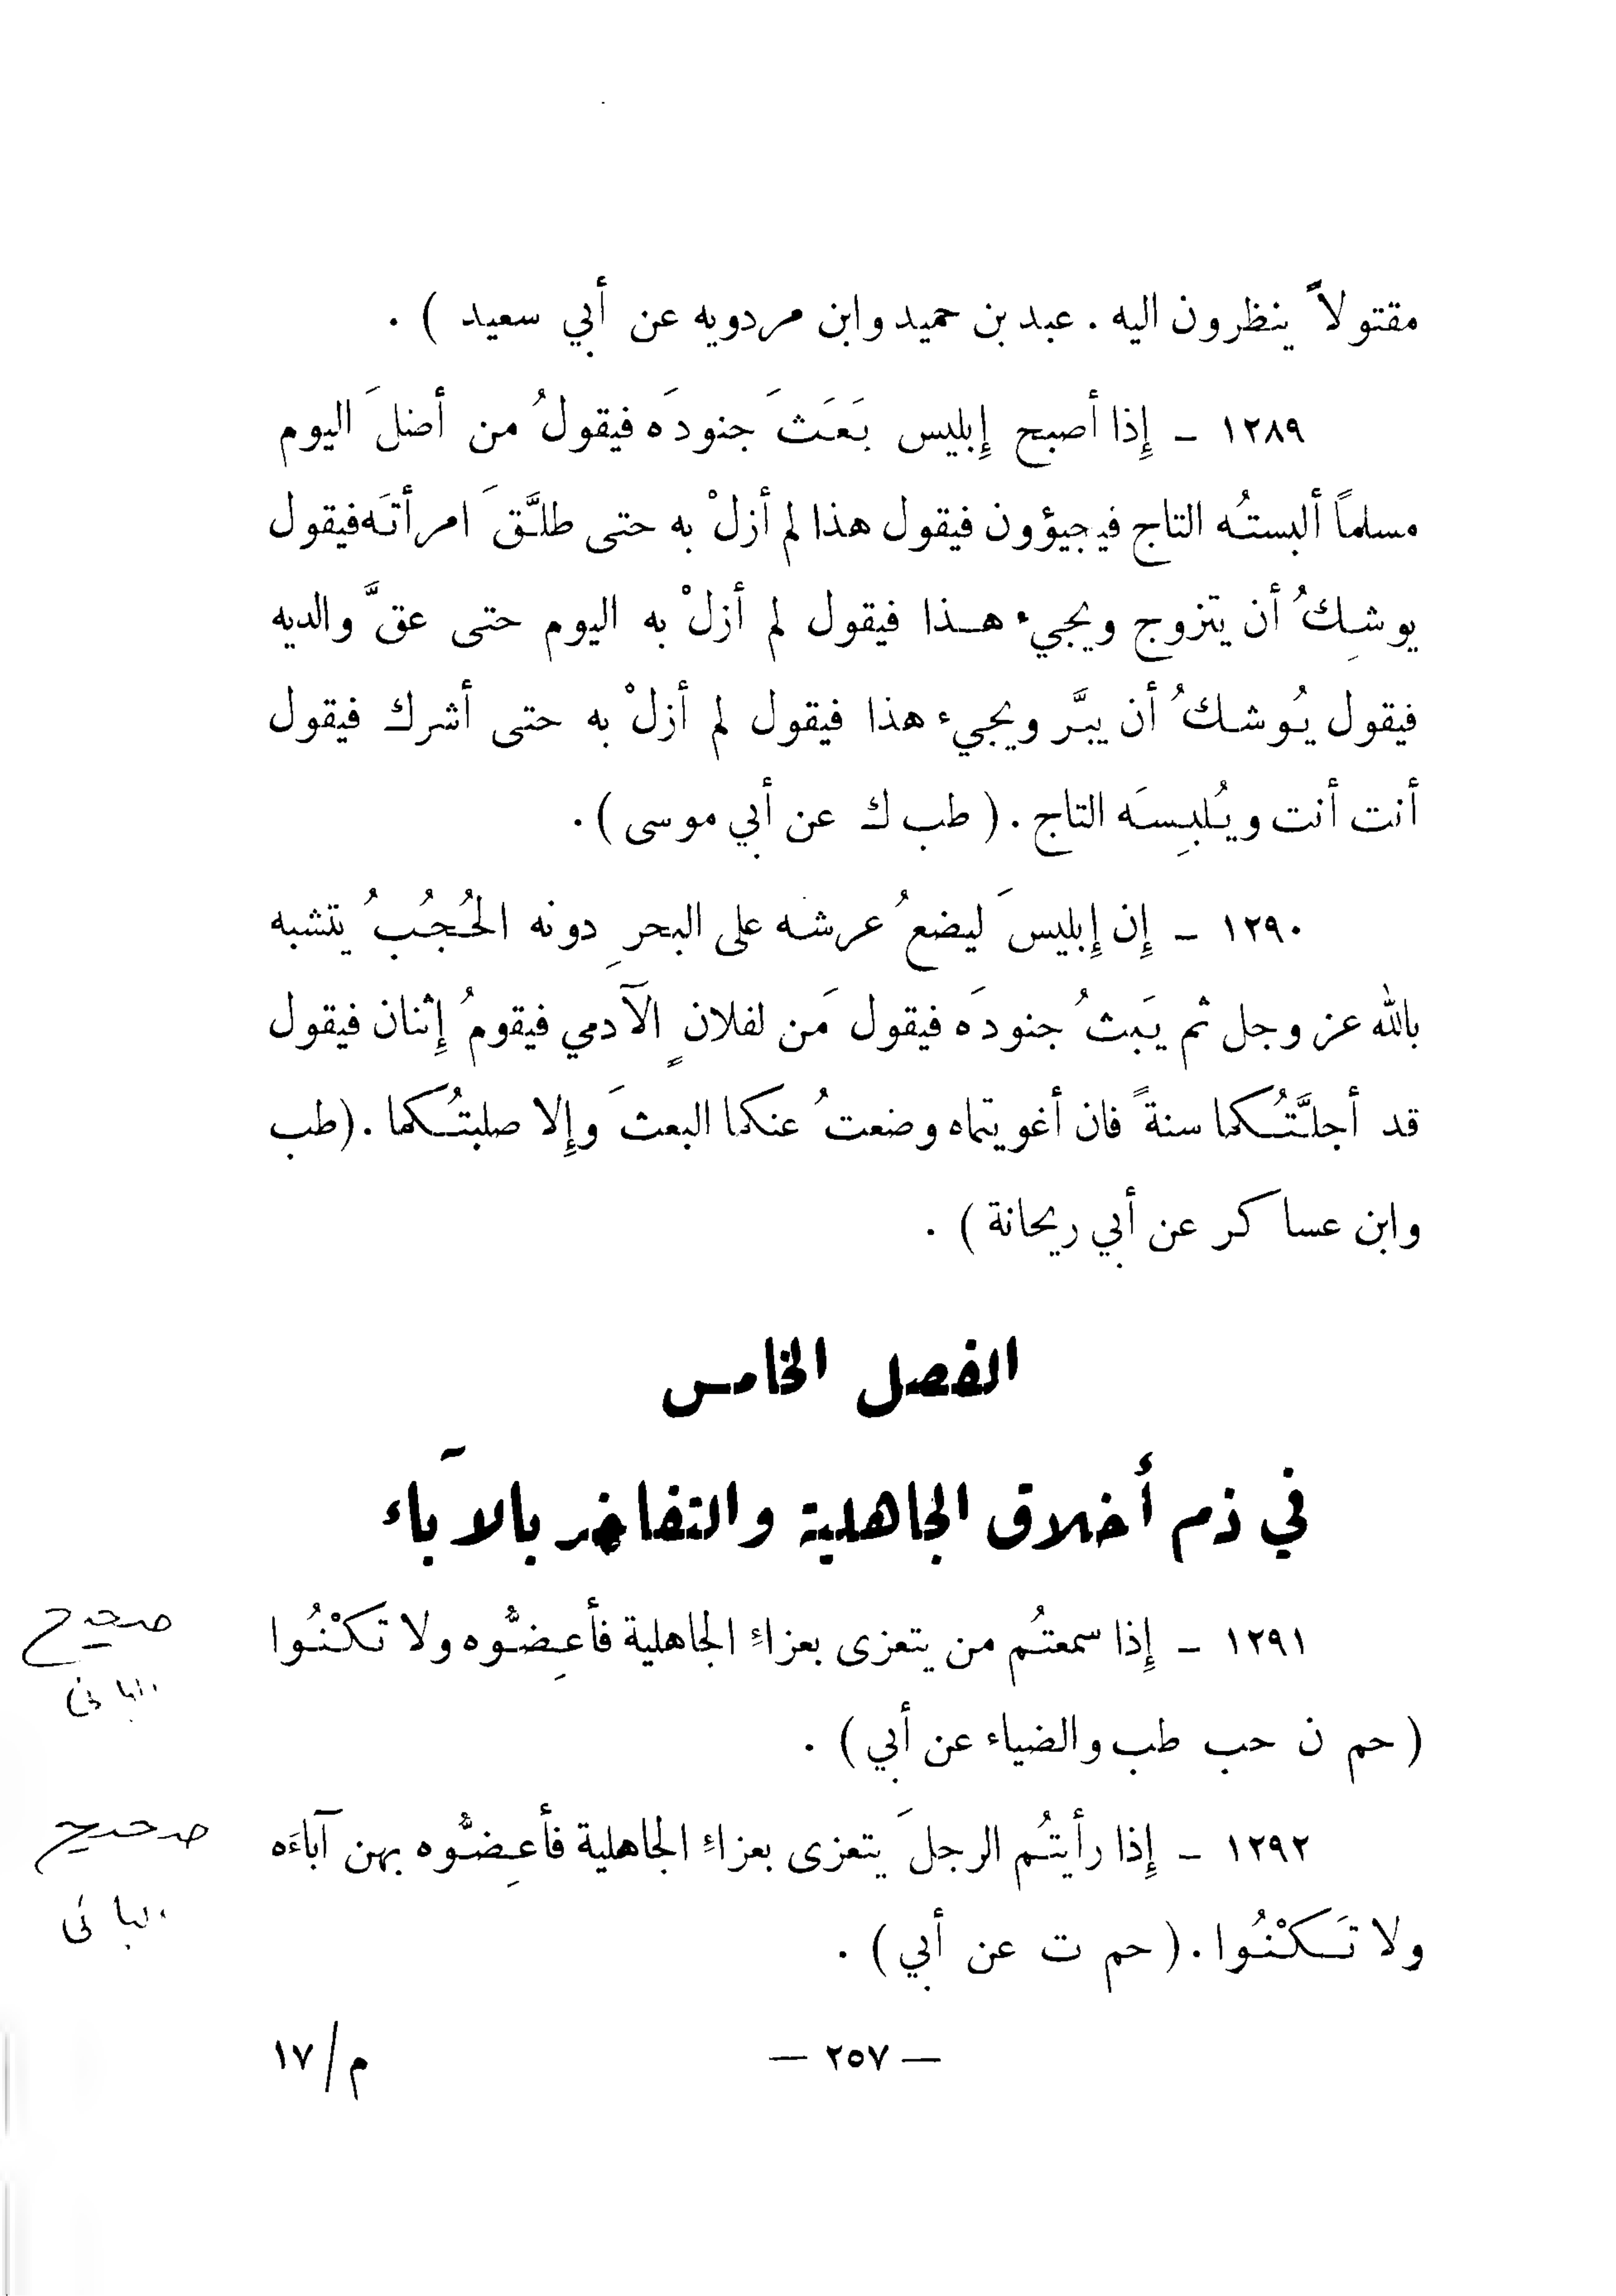 مقتولاً ينظرون اليه . عبد بن حميد وابن مردويه عن أبي سعيد ) .
١٢٨٩ ـ إِذا أصبح إِبليس بَعَثَ جنودَه فيقولُ من أضلَ اليوم
مسلماً ألبستُه التاج فيجيؤون فيقول هذا لم أزلْ به حتى طلَّقَ امرأتَه فيقول
يوشِكُ أن يتزوج ويجيء هذا فيقول لم أزلْ به اليوم حتى عقَّ والديه
فيقول يُوشكُ أن يبَّر ويجيء هذا فيقول لم أزلْ به حتى أشرك فيقول
أنت أنت ويُلبِسَه التاج . ( طب ك عن أبي موسى ) .
١٢٩٠ ـ إِن إِبليسَ ليضعُ عرشه على البحرِ دونه الحُجُبُ يتشبه
بالله عز وجل ثم يَبثُ جنودَه فيقول مَن لفلانٍ الآدمي فيقومُ إِثنان فيقول
قد أجلَّتُكما سنةً فان أغويتماه وضعتُ عنكما البعثَ وإِلا صلبتُكما . (طب
وابن عساكر عن أبي ريحانة ) .
الفصل الخامس
في ذم أخلاق الجاهلية والتفاخر بالآباء
١٢٩١ ـ إِذا سمعتُم من يتعزى بعزاءِ الجاهلية فأعِضُّوه ولا تَكْنُوا
صحيح
البانى
( حم ن حب طب والضياء عن أبي ) .
١٢٩٢ ـ إِذا رأيتُم الرجلَ يتعزى بعزاءِ الجاهلية فأعِضُّوه بهن آباءَه
صحيح
البانى
ولا تَكْنُوا . ( حم ت عن أبي ) .
— ٢٥٧ —
م/١٧